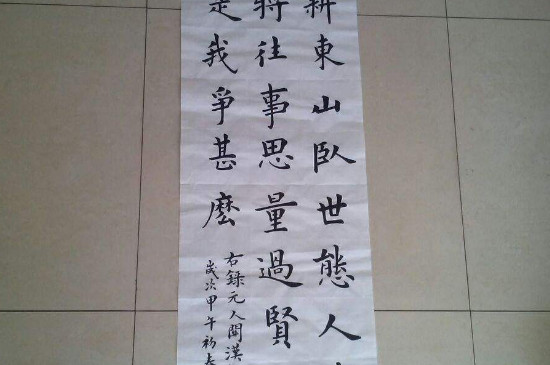 耕東山臥世態人
將往事思量過賢
是我爭甚麼
右録元人關漢
歲次甲午初春